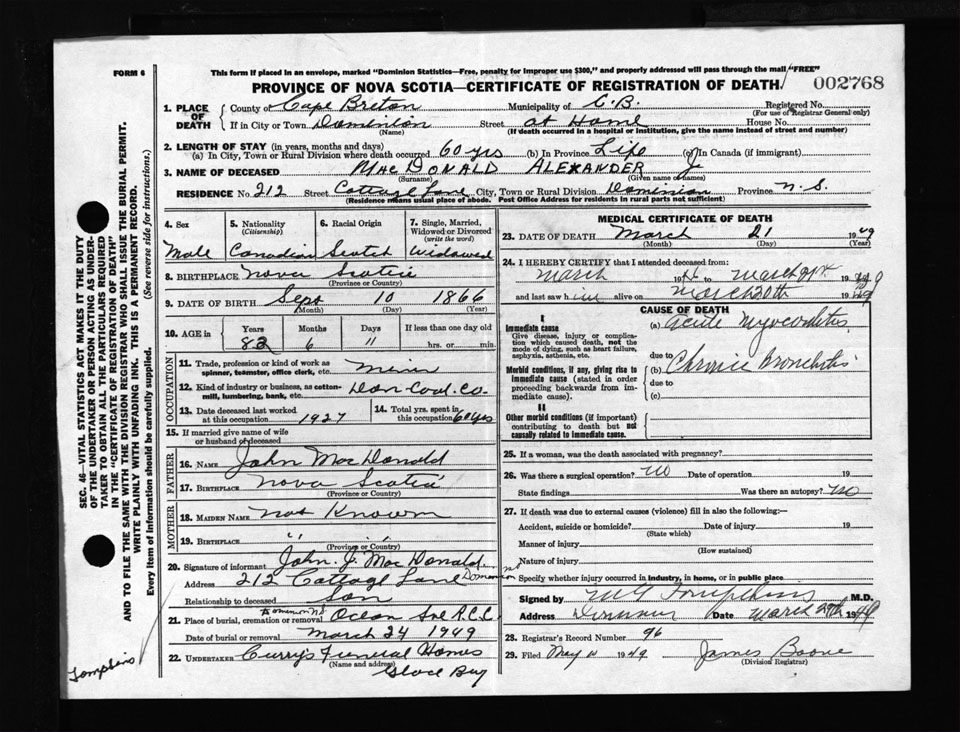 FORM 6
This form if placed in an envelope, marked "Dominion Statistics—Free, penalty for improper use $300," and properly addressed will pass through the mail "FREE"
PROVINCE OF NOVA SCOTIA—CERTIFICATE OF REGISTRATION OF DEATH
002768
1. PLACE OF DEATH
County of Cape Breton Municipality of C.B. Registered No.
(For use of Registrar General only)
If in City or Town Dominion Street at Home House No.
(Name) (If death occurred in a hospital or institution, give the name instead of street and number)
2. LENGTH OF STAY (in years, months and days)
(a) In City, Town or Rural Division where death occurred 60 yrs (b) In Province Life (c) In Canada (if immigrant)
3. NAME OF DECEASED MacDonald Alexander J
(Surname) (Given name or names)
RESIDENCE No. 212 Street Cottage Lane City, Town or Rural Division Dominion Province N.S.
(Residence means usual place of abode. Post Office Address for residents in rural parts not sufficient)
4. Sex 5. Nationality (Citizenship) 6. Racial Origin 7. Single, Married, Widowed or Divorced (write the word)
Male Canadian Scotch Widowed
8. BIRTHPLACE Nova Scotia
(Province or Country)
9. DATE OF BIRTH Sept 10 1866
(Month) (Day) (Year)
10. AGE in Years Months Days If less than one day old
82 6 11 hrs. or min.
OCCUPATION
11. Trade, profession or kind of work as spinner, teamster, office clerk, etc. Miner
12. Kind of industry or business, as cotton-mill, lumbering, bank, etc. Dom. Coal. Co.
13. Date deceased last worked at this occupation 1927 14. Total yrs. spent in this occupation 60 yrs
15. If married give name of wife or husband of deceased
FATHER
16. NAME John MacDonald
17. BIRTHPLACE Nova Scotia
(Province or Country)
MOTHER
18. MAIDEN NAME Not Known
19. BIRTHPLACE " "
(Province or Country)
20. Signature of informant John. J. MacDonald
Address 212 Cottage Lane Dominion NS
Relationship to deceased Son
21. Place of burial, cremation or removal Dominion NS Ocean R.C.C.
Date of burial or removal March 24 1949
22. UNDERTAKER Curry's Funeral Homes
(Name and address)
Glace Bay
MEDICAL CERTIFICATE OF DEATH
23. DATE OF DEATH March 21 1949
(Month) (Day) (Year)
24. I HEREBY CERTIFY that I attended deceased from:
March 19 to March 21st 1949
and last saw him alive on March 20th 1949
CAUSE OF DEATH
I
Immediate cause
Give disease, injury or complication which caused death, not the mode of dying, such as heart failure, asphyxia, asthenia, etc.
(a) Acute Myocarditis
due to
Morbid conditions, if any, giving rise to immediate cause (stated in order proceeding backwards from immediate cause).
(b) Chronic Bronchitis
due to
(c)
II
Other morbid conditions (if important) contributing to death but not causally related to immediate cause.
25. If a woman, was the death associated with pregnancy?
26. Was there a surgical operation? No Date of operation 19
State findings Was there an autopsy? No
27. If death was due to external causes (violence) fill in also the following:—
Accident, suicide or homicide? Date of injury 19
(State which)
Manner of injury
(How sustained)
Nature of injury
Specify whether injury occurred in industry, in home, or in public place
Signed by Tompkins M.D.
Address Dominion Date March 29th 1949
28. Registrar's Record Number 96
29. Filed May 1949 James Boone
(Division Registrar)
SEC. 46—VITAL STATISTICS ACT MAKES IT THE DUTY
OF THE UNDERTAKER OR PERSON ACTING AS UNDER-
TAKER TO OBTAIN ALL THE PARTICULARS REQUIRED
IN THE "CERTIFICATE OF REGISTRATION OF DEATH"
AND TO FILE THE SAME WITH THE DIVISION REGISTRAR WHO SHALL ISSUE THE BURIAL PERMIT.
WRITE PLAINLY WITH UNFADING INK. THIS IS A PERMANENT RECORD.
Every item of information should be carefully supplied. (See reverse side for instructions.)
Tompkins